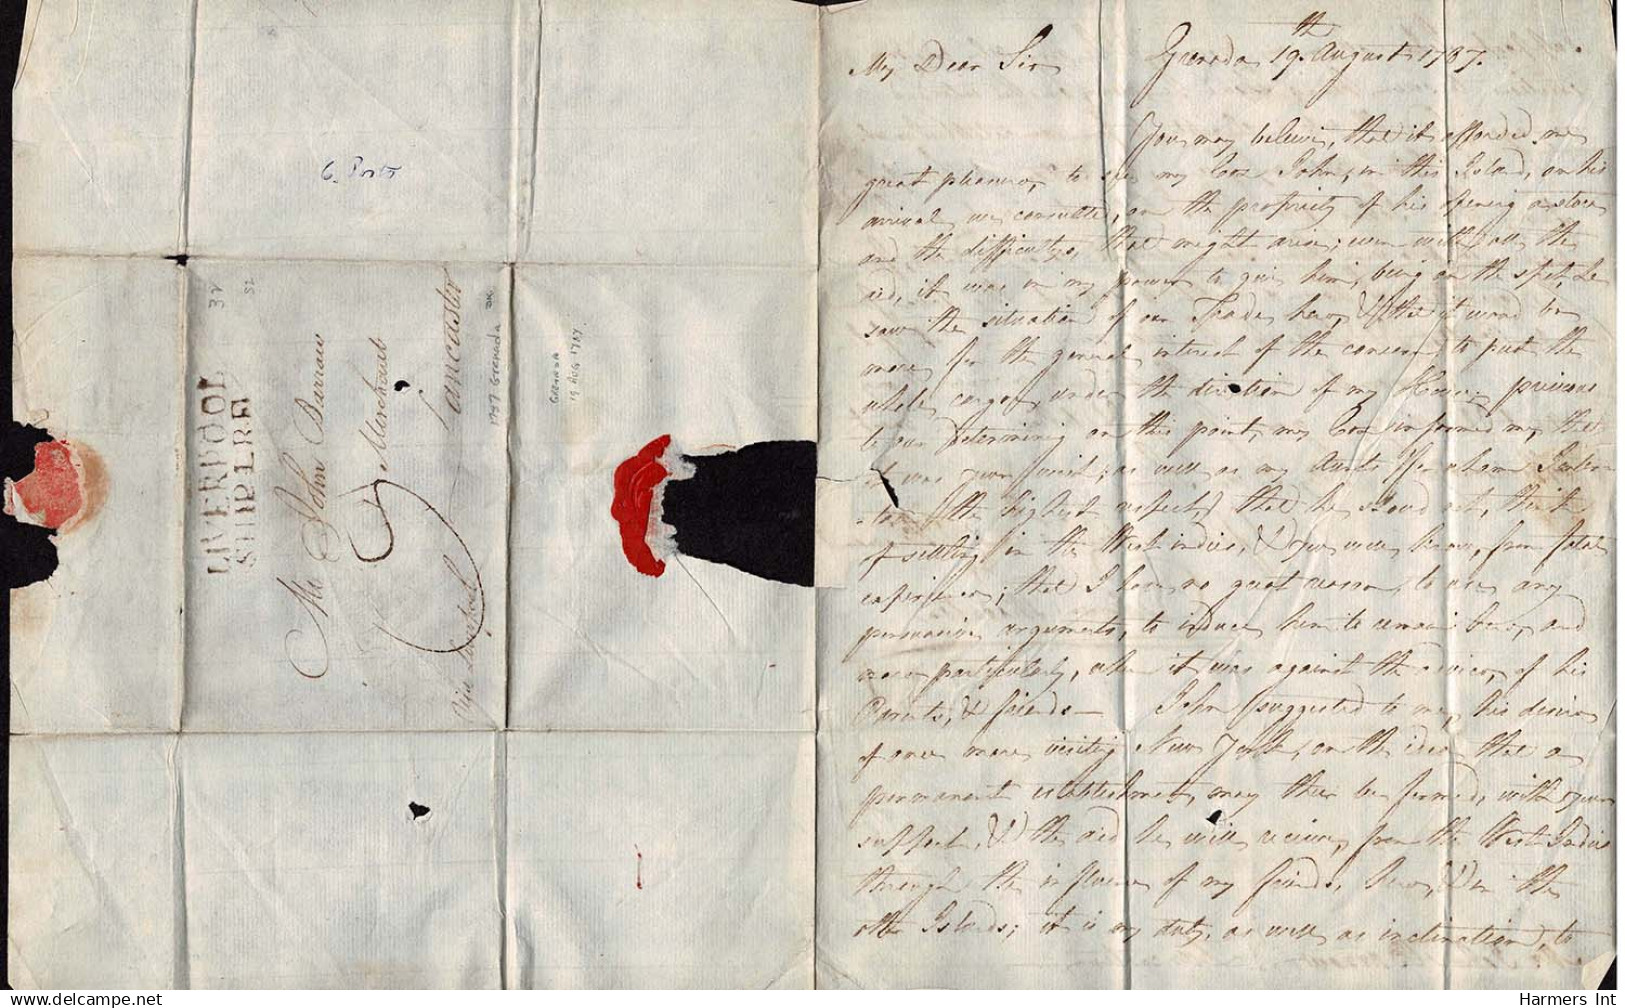 6. Ports
32
52
LIVERPOOL
SHIP LRE
Mr John Barrow
Merchant
Lancaster
Via Liverpool
1787 Grenada
GRENADA
19 AUG 1787
My Dear Sir
Grenada 19.th August 1787.
You may believe, that it afforded me
great pleasure, to see my Coz John, in this Island, on his
arrival we consulted, on the propriety of his opening a store
and the difficultys, that might arise; even with all the
aid, it was in my power to give him, being on the spot, he
saw the situation of our Trade here, & that it would be
more for the general interest of the concern to put the
whole cargo, under the direction of my House, previous
to our determining on this point, my Coz informed me, that
it was your wish, as well as my Aunts
the highest respect) that he should not, think
of settling in the West indies, & you well know, from fatal
experience; that I have no great reason, to use any
persuasive arguments, to induce him to remain here, and
more particularly, when it was against the advice, of his
Parents, & friends — John suggested to me, his desire
of once more visiting New York, on the idea, that a
permanent establishment, may there be formed, with your
support, & the aid he will receive, from the West Indies
through the influence of my friends, here, & in the
other Islands; it is my duty, as well as inclination, to
Harmers Int